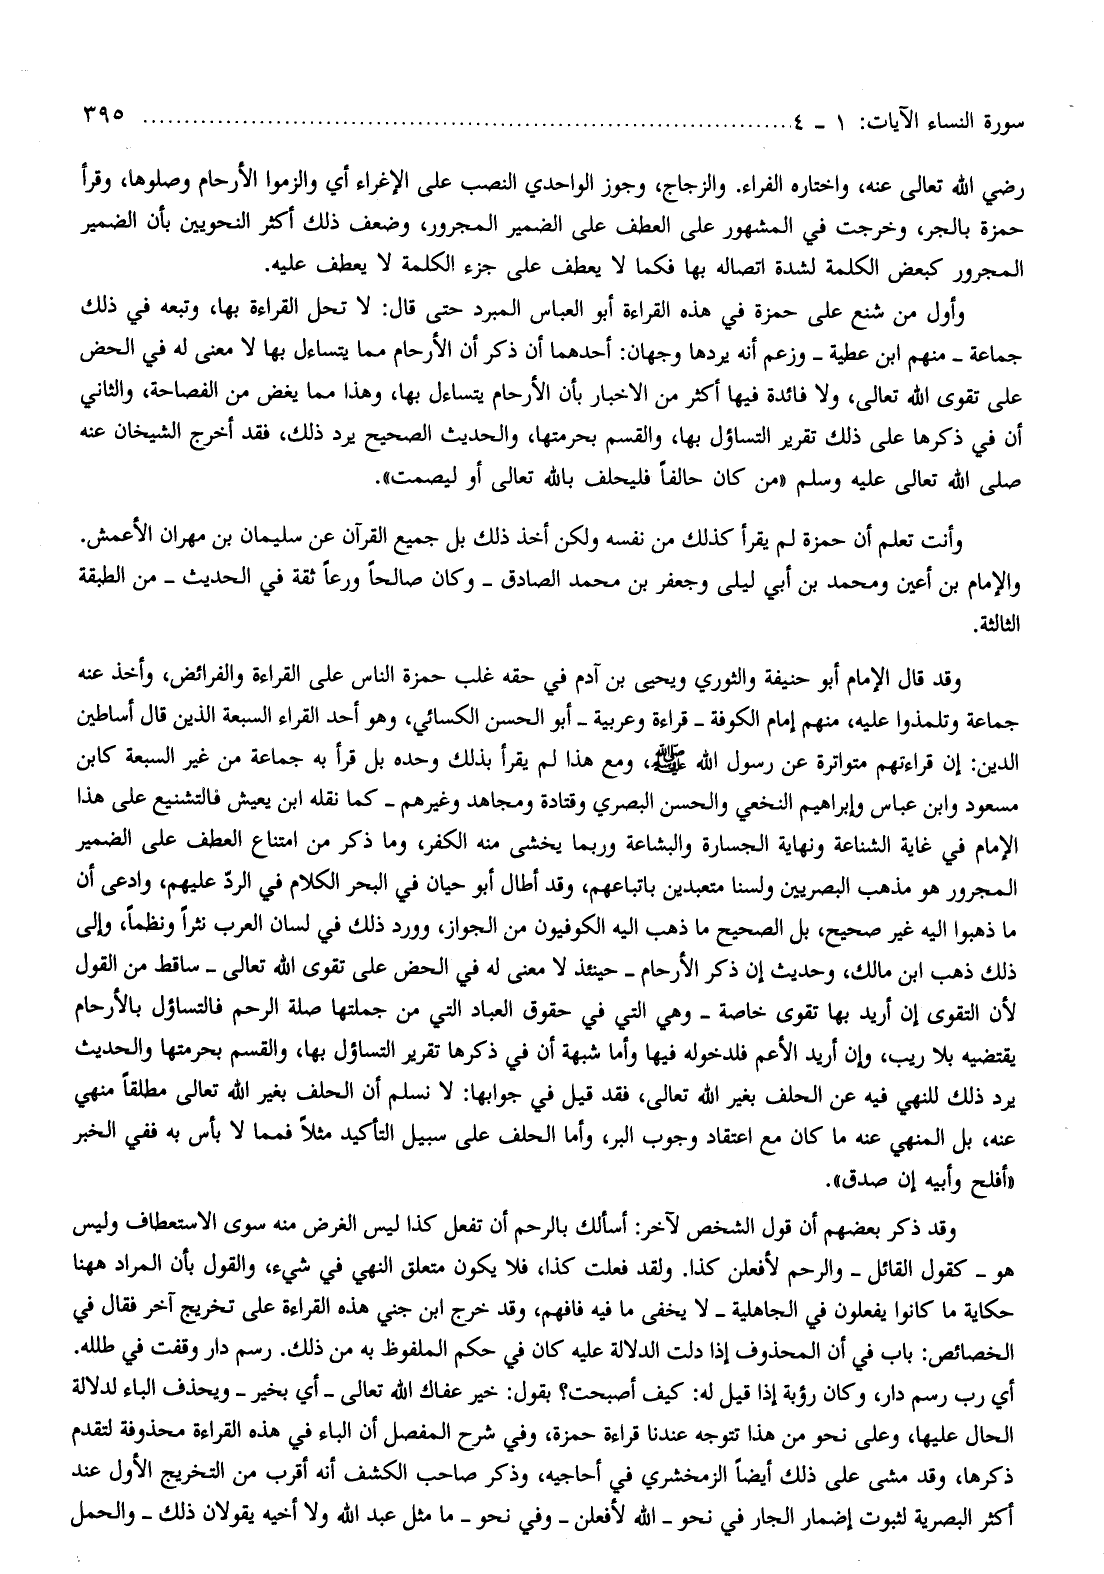 سورة النساء الآيات: ١ ـ ٤ ........................................................................ ٣٩٥
رضي الله تعالى عنه، واختاره الفراء. والزجاج، وجوز الواحدي النصب على الإغراء أي والزموا الأرحام وصلوها، وقرأ
حمزة بالجر، وخرجت في المشهور على العطف على الضمير المجرور، وضعف ذلك أكثر النحويين بأن الضمير
المجرور كبعض الكلمة لشدة اتصاله بها فكما لا يعطف على جزء الكلمة لا يعطف عليه.
وأول من شنع على حمزة في هذه القراءة أبو العباس المبرد حتى قال: لا تحل القراءة بها، وتبعه في ذلك
جماعة ـ منهم ابن عطية ـ وزعم أنه يردها وجهان: أحدهما أن ذكر أن الأرحام مما يتساءل بها لا معنى له في الحض
على تقوى الله تعالى، ولا فائدة فيها أكثر من الاخبار بأن الأرحام يتساءل بها، وهذا مما يغض من الفصاحة، والثاني
أن في ذكرها على ذلك تقرير التساؤل بها، والقسم بحرمتها، والحديث الصحيح يرد ذلك، فقد أخرج الشيخان عنه
صلى الله تعالى عليه وسلم «من كان حالفاً فليحلف بالله تعالى أو ليصمت».
وأنت تعلم أن حمزة لم يقرأ كذلك من نفسه ولكن أخذ ذلك بل جميع القرآن عن سليمان بن مهران الأعمش.
والإمام بن أعين ومحمد بن أبي ليلى وجعفر بن محمد الصادق ـ وكان صالحاً ورعاً ثقة في الحديث ـ من الطبقة
الثالثة.
وقد قال الإمام أبو حنيفة والثوري ويحيى بن آدم في حقه غلب حمزة الناس على القراءة والفرائض، وأخذ عنه
جماعة وتلمذوا عليه، منهم إمام الكوفة ـ قراءة وعربية ـ أبو الحسن الكسائي، وهو أحد القراء السبعة الذين قال أساطين
الدين: إن قراءتهم متواترة عن رسول الله ﷺ، ومع هذا لم يقرأ بذلك وحده بل قرأ به جماعة من غير السبعة كابن
مسعود وابن عباس وإبراهيم النخعي والحسن البصري وقتادة ومجاهد وغيرهم ـ كما نقله ابن يعيش فالتشنيع على هذا
الإمام في غاية الشناعة ونهاية الجسارة والبشاعة وربما يخشى منه الكفر، وما ذكر من امتناع العطف على الضمير
المجرور هو مذهب البصريين ولسنا متعبدين باتباعهم، وقد أطال أبو حيان في البحر الكلام في الردّ عليهم، وادعى أن
ما ذهبوا اليه غير صحيح، بل الصحيح ما ذهب اليه الكوفيون من الجواز، وورد ذلك في لسان العرب نثراً ونظماً، وإلى
ذلك ذهب ابن مالك، وحديث إن ذكر الأرحام ـ حينئذ لا معنى له في الحض على تقوى الله تعالى ـ ساقط من القول
لأن التقوى إن أريد بها تقوى خاصة ـ وهي التي في حقوق العباد التي من جملتها صلة الرحم فالتساؤل بالأرحام
يقتضيه بلا ريب، وإن أريد الأعم فلدخوله فيها وأما شبهة أن في ذكرها تقرير التساؤل بها، والقسم بحرمتها والحديث
يرد ذلك للنهي فيه عن الحلف بغير الله تعالى، فقد قيل في جوابها: لا نسلم أن الحلف بغير الله تعالى مطلقاً منهي
عنه، بل المنهي عنه ما كان مع اعتقاد وجوب البر، وأما الحلف على سبيل التأكيد مثلاً فمما لا بأس به ففي الخبر
«أفلح وأبيه إن صدق».
وقد ذكر بعضهم أن قول الشخص لآخر: أسألك بالرحم أن تفعل كذا ليس الغرض منه سوى الاستعطاف وليس
هو ـ كقول القائل ـ والرحم لأفعلن كذا. ولقد فعلت كذا، فلا يكون متعلق النهي في شيء، والقول بأن المراد ههنا
حكاية ما كانوا يفعلون في الجاهلية ـ لا يخفى ما فيه فافهم، وقد خرج ابن جني هذه القراءة على تخريج آخر فقال في
الخصائص: باب في أن المحذوف إذا دلت الدلالة عليه كان في حكم الملفوظ به من ذلك. رسم دار وقفت في طلله.
أي رب رسم دار، وكان رؤبة إذا قيل له: كيف أصبحت؟ بقول: خير عفاك الله تعالى ـ أي بخير ـ ويحذف الباء لدلالة
الحال عليها، وعلى نحو من هذا تتوجه عندنا قراءة حمزة، وفي شرح المفصل أن الباء في هذه القراءة محذوفة لتقدم
ذكرها، وقد مشى على ذلك أيضاً الزمخشري في أحاجيه، وذكر صاحب الكشف أنه أقرب من التخريج الأول عند
أكثر البصرية لثبوت إضمار الجار في نحو ـ الله لأفعلن ـ وفي نحو ـ ما مثل عبد الله ولا أخيه يقولان ذلك ـ والحمل